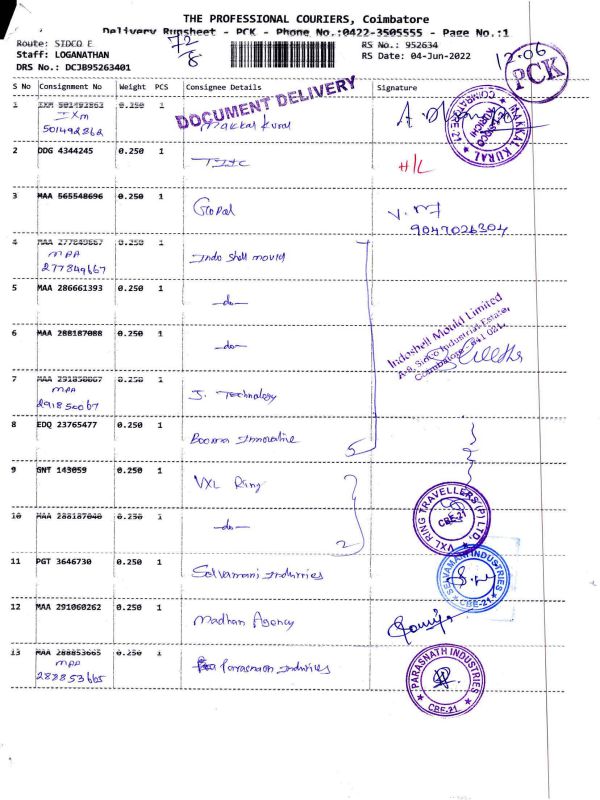 THE PROFESSIONAL COURIERS, Coimbatore
Delivery Runsheet - PCK - Phone No.:0422-3505555 - Page No.:1
Route: SIDCO E
72/8
RS No.: 952634
12.06
Staff: LOGANATHAN
RS Date: 04-Jun-2022
PCK
DRS No.: DCJB95263401
S No Consignment No Weight PCS Consignee Details Signature
DOCUMENT DELIVERY
1 IXM 501492862 0.250 1 Makkal Kural
IXM
501492862
MAKKAL KURAL
COIMBATORE-21
SIDCO
KURICHI
2 DDG 4344245 0.250 1 TIIC H/L
3 MAA 565548696 0.250 1 Gopal V. M
9047026304
4 MAA 277849667 0.250 1 Indo Shell mould
MAA
277849667
5 MAA 286661393 0.250 1 -do-
Indoshell Mould Limited
A-9, Sidco Industrial Estate,
Coimbatore - 641 021.
6 MAA 288187088 0.250 1 -do-
7 MAA 291850067 0.250 1 J. Technology
MAA
291850067
8 EDQ 23765477 0.250 1 Booma Innovative
5
9 GNT 143059 0.250 1 VXL Ring
VXL RING TRAVELLERS (P) LTD.
CBE-21
10 MAA 288187040 0.250 1 -do-
2
11 PGT 3646730 0.250 1 Selvamani Industries
SELVAMANI INDUSTRIES
CBE-21
12 MAA 291060262 0.250 1 Madhan Agency
13 MAA 288853665 0.250 1 Parasnath Industries
MAA
288853665
PARASNATH INDUSTRIES
CBE-21.